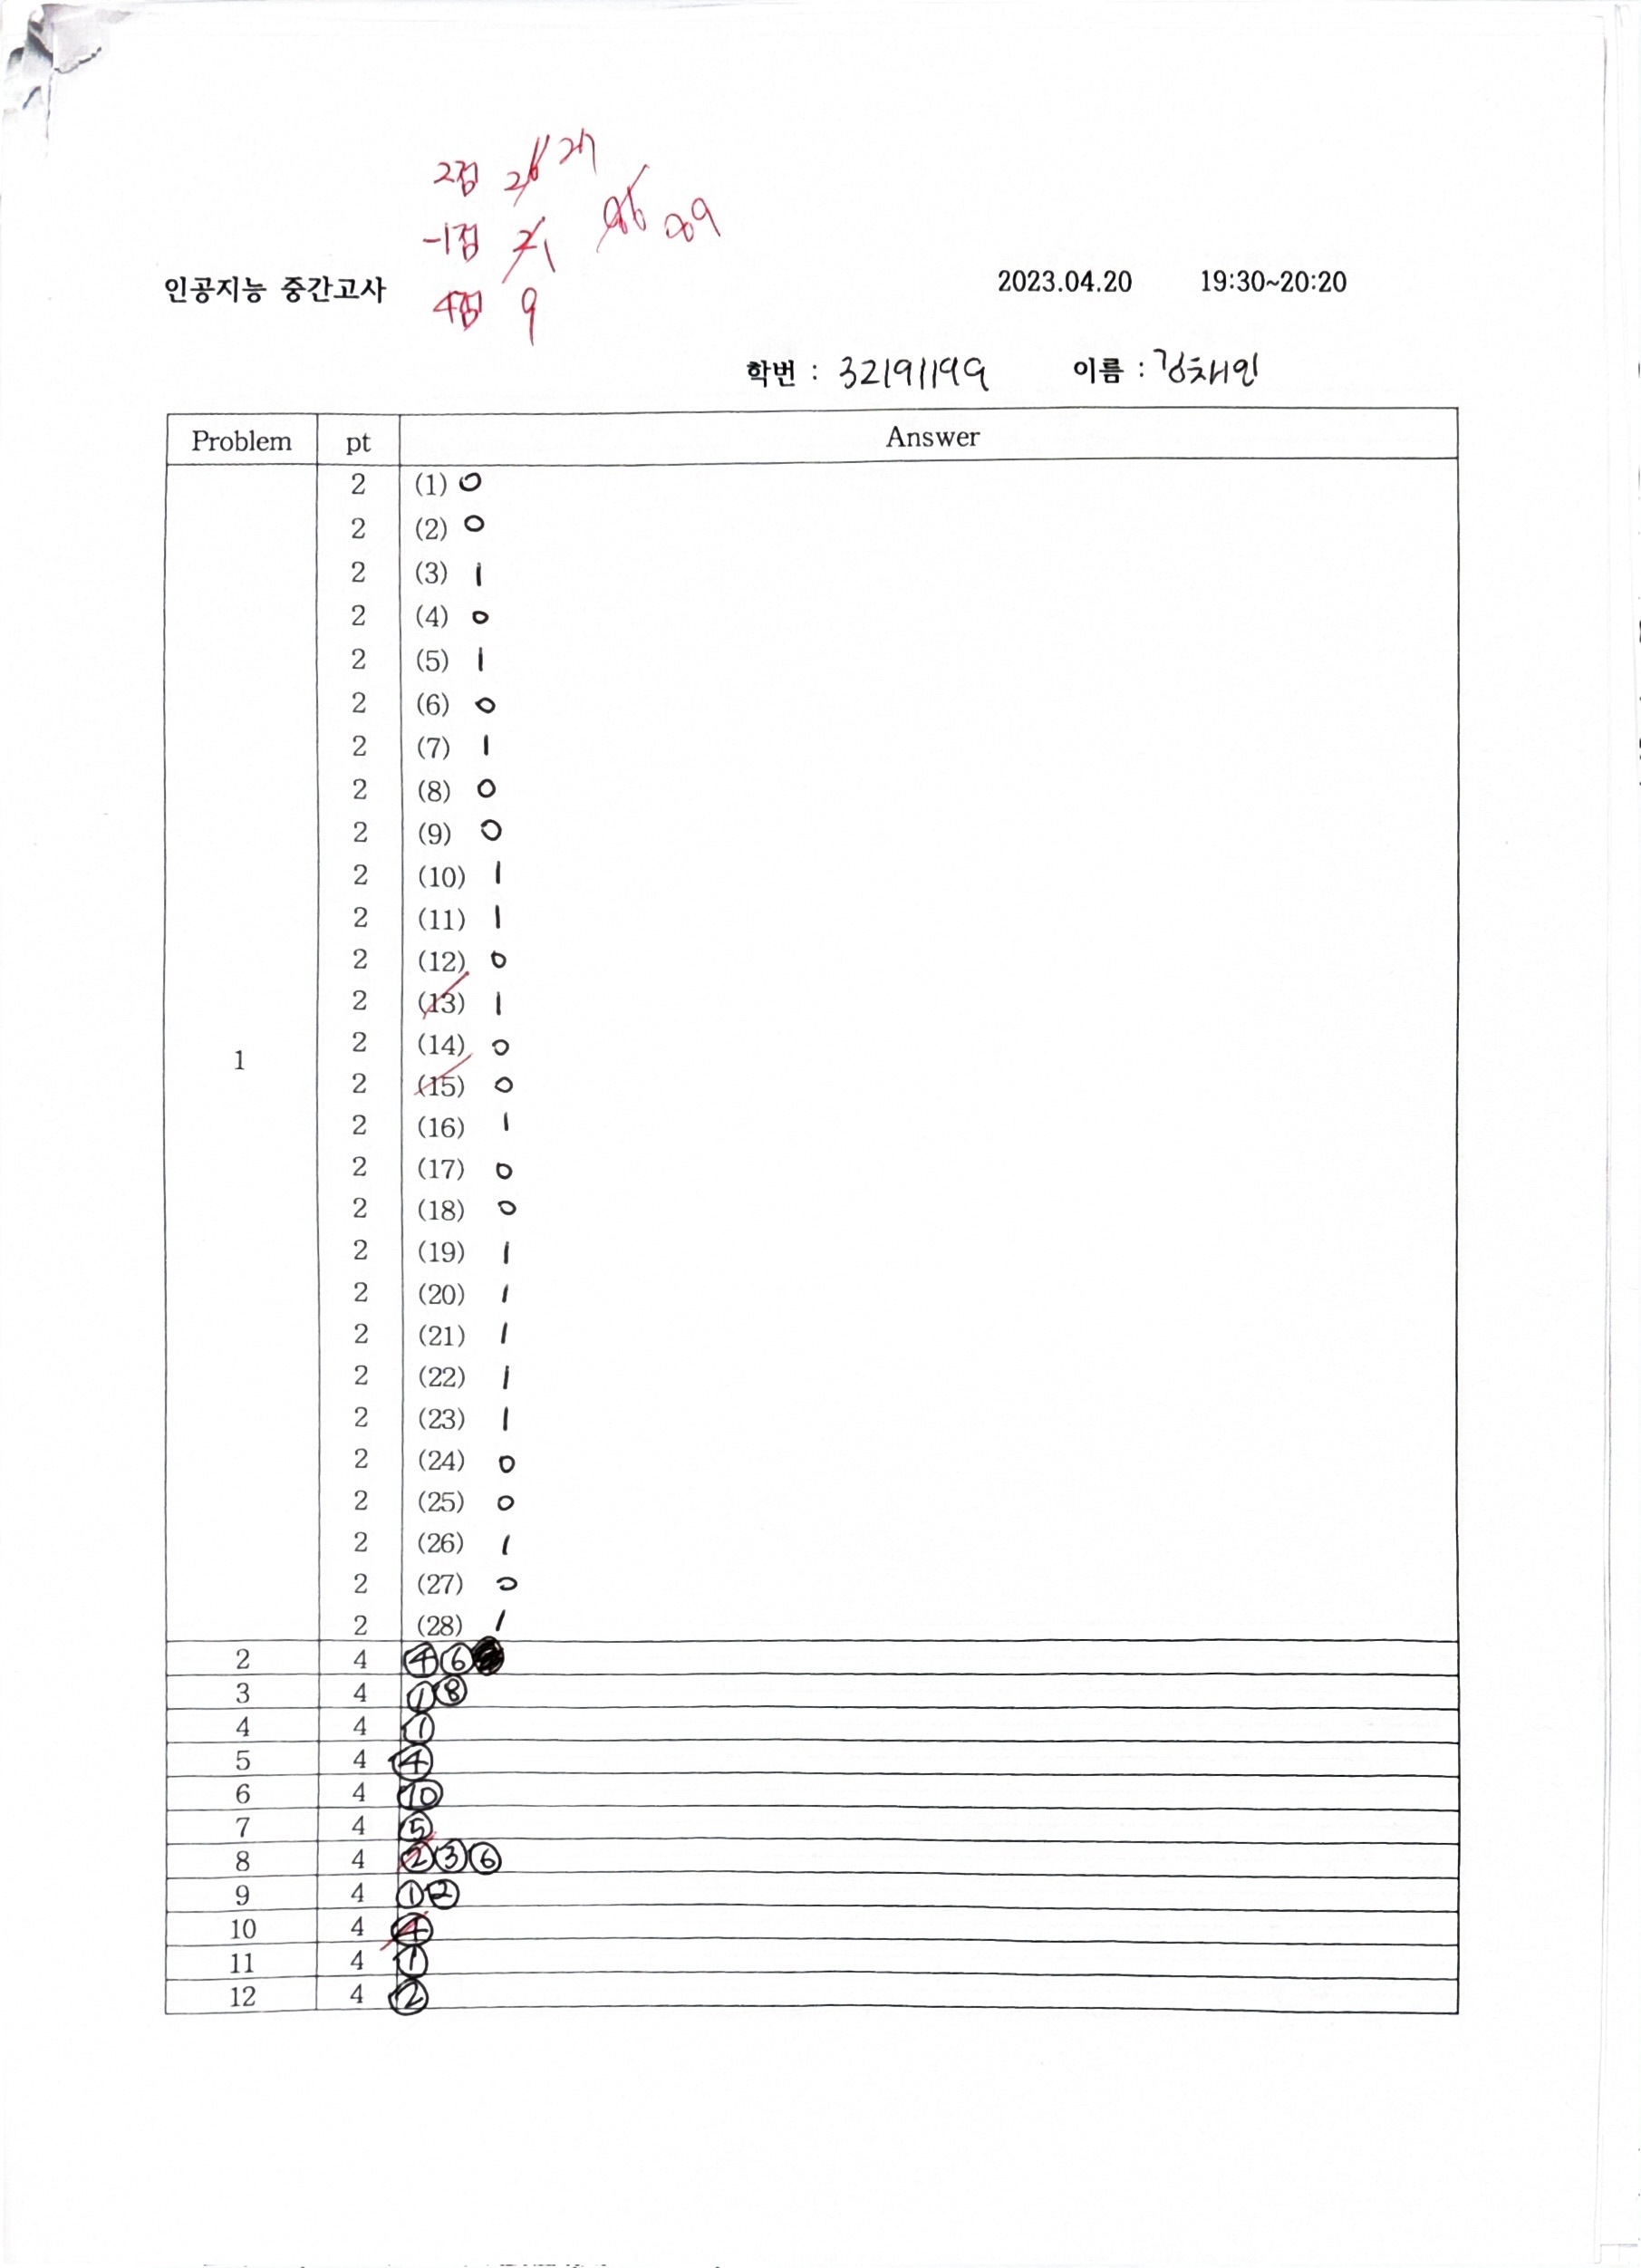 2점 26 27
-1점 2 1 86 89
4점 9
인공지능 중간고사 2023.04.20 19:30~20:20
학번 : 32191199 이름 : 김채인
Problem pt Answer
2 (1) 0
2 (2) 0
2 (3) 1
2 (4) 0
2 (5) 1
2 (6) 0
2 (7) 1
2 (8) 0
2 (9) 0
2 (10) 1
2 (11) 1
2 (12) 0
2 (13) 1
2 (14) 0
1
2 (15) 0
2 (16) 1
2 (17) 0
2 (18) 0
2 (19) 1
2 (20) 1
2 (21) 1
2 (22) 1
2 (23) 1
2 (24) 0
2 (25) 0
2 (26) 1
2 (27) 0
2 (28) 1
2 4 ④⑥
3 4 ①⑧
4 4 ①
5 4 ④
6 4 ⑩
7 4 ⑤
8 4 ②③⑥
9 4 ①②
10 4 ④
11 4 ①
12 4 ②